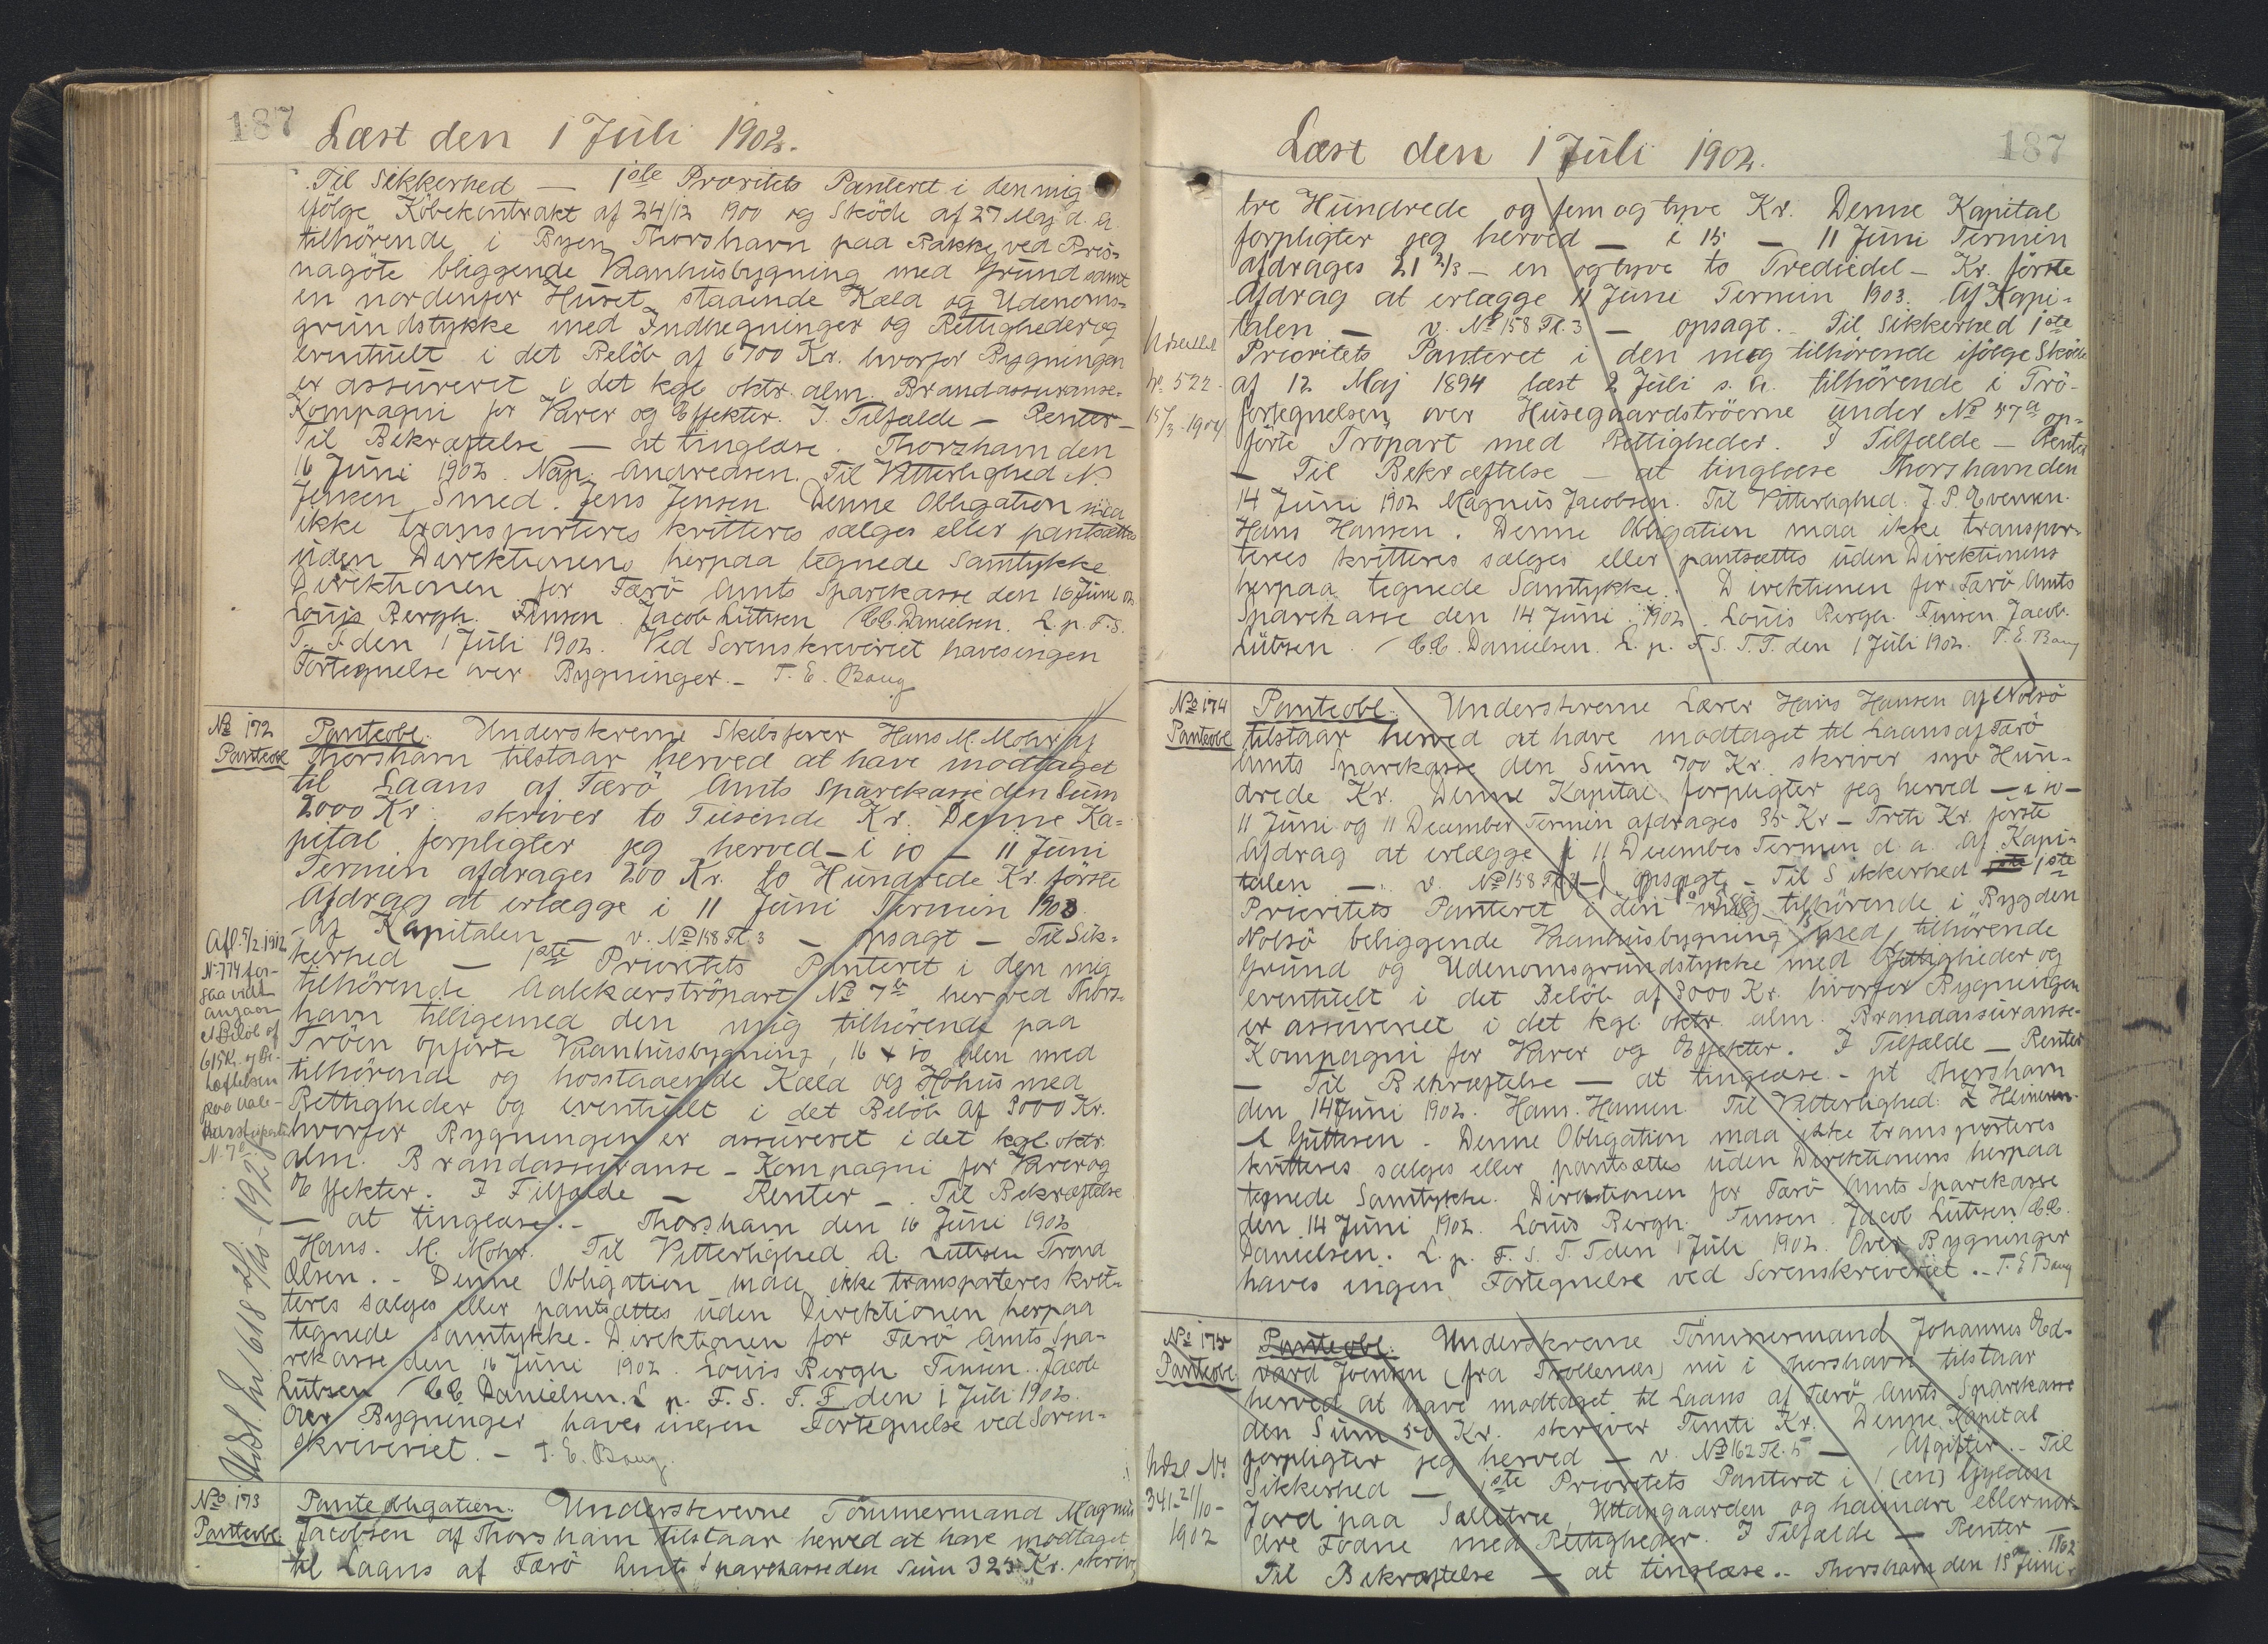 187
Læst den 1 Juli 1902.
Til Sikkerhed — 1ste Prioritets Panteret i den mig
ifölge Köbekontrakt af 24/12 1900 og Sköde af 27 Maj d. a.
tilhörende i Byen Thorshavn paa Bakke ved Bris=
nagöte bliggende Vaanhusbygning med Grund samt
en nordenfor Huset staaende Kæld og Udenoms=
grundstykke med Indhegninger og Rettigheder og
eventuelt i det Belöb af 6700 Kr. hvorfor Bygningen
er assureret i det kgl. oktr. alm. Brandassuranse-
Kompagni for Varer og Effekter. I Tilfælde — Renter —
Til Bekræftelse — at tinglæse. Thorshavn den
16 Juni 1902. Nap. Andreasen. Til Vitterlighed N.
Jensen Smed. Jens Jensen. Denne Obligation maa
ikke transporteres kvitteres sælges eller pantsættes
uden Direktionens herpaa tegnede Samtykke
Direktionen for Færö Amts Sparekasse den 16 Juni 02
Louis Bergh. Finsen. Jacob Lützen / C.C. Danielsen. L. p. F. S.
T. F. den 1 Juli 1902. Ved Sorenskriveriet haves ingen
Fortegnelse over Bygninger. — T. E. Bang
No 172
Panteobl
Panteobl. Underskrevne Skibsförer Hans M. Mohr af
Thorshavn tilstaar herved at have modtaget
til Laans af Færö Amts Sparekasse den Sum
2000 Kr. skriver to Tusinde Kr. Denne Ka=
pital forpligter jeg herved — i 10 — 11 Juni
Termin afdrages 200 Kr. to Hundrede Kr. förste
Afdrag at erlægge i 11 Juni Termin 1903.
— Af Kapitalen — v. No 158 Fl. 3 — opsagt — Til Sik=
kerhed — 1ste Prioritets Panteret i den mig
tilhörende Aalekærströpart No 7 herved Thors=
havn tilligemed den mig tilhörende paa
Tröen opförte Vaanhusbygning, 16 x 10 alen med
tilhörende og hosstaaende Kæld og Hohus med
Rettigheder og eventuelt i det Belöb af 3000 Kr.
hvorfor Bygningen er assureret i det kgl. oktr.
alm. Brandassuranse-Kompagni for Varer og
Effekter. I Tilfælde — Renter —. Til Bekræftelse
— at tinglæse. — Thorshavn den 16 Juni 1902
Hans. M. Mohr. Til Vitterlighed A. Lützen Trond
Olsen. — Denne Obligation maa ikke transporteres kvit=
teres sælges eller pantsættes uden Direktionen herpaa
tegnede Samtykke. Direktionen for Færö Amts Spa=
rekasse den 16 Juni 1902. Louis Bergh Finsen. Jacob
Lützen / C.C. Danielsen. L. p. F. S. T. F. den 1 Juli 1902.
Over Bygninger haves ingen Fortegnelse ved Soren=
skriveriet. — T. E. Bang.
Afl. 5/2 1912
N. 774 for-
saavidt
angaar
et Belöb af
615 Kr. og Be-
hæftelsen
paa Aale-
N. 7
Udsl. No 1618
No 173
Panteobl.
Panteobligation. Underskrevne Tömmermand Magnus
Jacobsen af Thorshavn tilstaar herved at have modtaget
til Laans af Færö Amts Sparekasse den Sum 325 Kr. skriver
187
Læst den 1 Juli 1902.
tre Hundrede og fem og tyve Kr. Denne Kapital
forpligter jeg herved — i 15 — 11 Juni Termin
afdrages 21 2/3 — en og tyve to Trediedel — Kr. förste
Afdrag at erlægge 11 Juni Termin 1903. Af Kapi=
talen — v. No 158 Fl. 3 — opsagt. — Til Sikkerhed 1ste
Prioritets Panteret i den mig tilhörende ifölge Sköde
af 12 Maj 1894 læst 2 Juli s. a. tilhörende i Trö-
fortegnelsen over Husegaardströerne under No 57a op=
förte Tröpart med Rettigheder. I Tilfælde — Renter
— Til Bekræftelse — at tinglæse Thorshavn den
14 Juni 1902 Magnus Jacobsen. Til Vitterlighed. J. P. Evensen.
Hans Hansen. Denne Obligation maa ikke transpor=
teres kvitteres sælges eller pantsættes uden Direktionens
herpaa tegnede Samtykke. Direktionen for Færö Amts
Sparekasse den 14 Juni 1902. Louis Bergh. Finsen. Jacob.
Lützen. / C.C. Danielsen. L. p. F. S. T. F. den 1 Juli 1902. T. E. Bang
Udslettet
No 522.
15/3 1904
No 174
Panteobl
Panteobl. Underskrevne Lærer Hans Hansen af Nolsö
tilstaar herved at have modtaget til Laans af Færö
Amts Sparekasse den Sum 700 Kr. skriver syv Hun=
drede Kr. Denne Kapital forpligter jeg herved — i 10 —
11 Juni og 11 December Termin afdrages 35 Kr — Treti Kr. förste
Afdrag at erlægge i 11 December Termin d. a. Af Kapi=
talen — v. No 158 Fl. 3 — opsagt. — Til Sikkerhed 1ste
Prioritets Panteret i den mig tilhörende i Bygden
Nolsö beliggende Vaanhusbygning med tilhörende
Grund og Udenomsgrundstykke med Rettigheder og
eventuelt i det Belöb af 3000 Kr. hvorfor Bygningen
er assureret i det kgl. oktr. alm. Brandassuranse-
Kompagni for Varer og Effekter. I Tilfælde — Renter
— Til Bekræftelse — at tinglæse. — pt Thorshavn
den 14 Juni 1902. Hans. Hansen. Til Vitterlighed: Z Heinesen
Guttesen. — Denne Obligation maa ikke transporteres
kvitteres sælges eller pantsættes uden Direktionens herpaa
tegnede Samtykke. Direktionen for Færö Amts Sparekasse
den 14 Juni 1902. Louis Bergh. Finsen. Jacob Lützen / C.C.
Danielsen. L. p. F. S. T. F. den 1 Juli 1902. Over Bygninger
haves ingen Fortegnelse ved Sorenskriveriet. — T. E. Bang
No 175
Panteobl.
Panteobl. Underskrevne Tömmermand Johannes Ed=
vard Joensen (fra Trollenæs) nu i Thorshavn tilstaar
herved at have modtaget til Laans af Færö Amts Sparekasse
den Sum 50 Kr. skriver Femti Kr. Denne Kapital
forpligter jeg herved — v. No 162 Fl. 5 — Afgifter. — Til
Sikkerhed — 1ste Prioritets Panteret i 1 (en) Gylden
Jord paa Sælletræ, Uttangaarden og haimdre eller nor=
dre Fodne med Rettigheder. I Tilfælde — Renter —
Til Bekræftelse — at tinglæse. — Thorshavn den 18 Juni 1902
Udsl No
341 - 21/10 -
1902